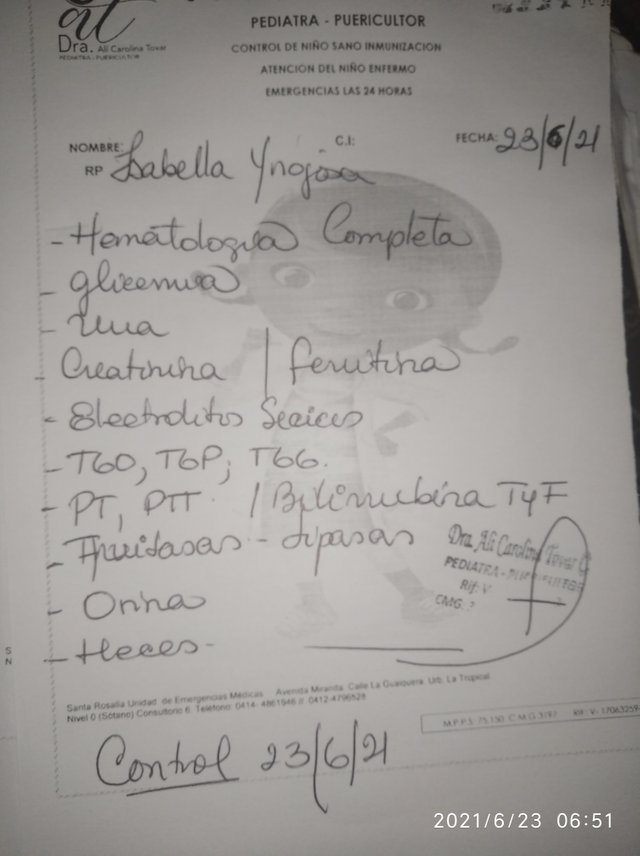 at
Dra. Ali Carolina Tovar
PEDIATRA - PUERICULTOR
PEDIATRA - PUERICULTOR
CONTROL DE NIÑO SANO INMUNIZACION
ATENCION DEL NIÑO ENFERMO
EMERGENCIAS LAS 24 HORAS
NOMBRE: Isabella Ynojosa C.I: FECHA: 23/6/21
RP
- Hematologia Completa
- Glicemia
- Urea
- Creatinina / ferritina
- Electrolitos Sericos
- TGO, TGP, TGG.
- PT, PTT. / Bilirrubina TyF
- Amilasas - Lipasas
- Orina
- Heces-
Dra. Ali Carolina Tovar C
PEDIATRA - PUERICULTOR
Rif: V
CMG: ?
Santa Rosalia Unidad de Emergencias Médicas Avenida Miranda Calle La Guaiquera Urb. La Tropical
Nivel 0 (Sótano) Consultorio 6. Teléfono: 0414- 4861946 // 0412-4796528
M.P.P.S 75.150 C.M.G 3197 RIF: V- 17063259-
Control 23/6/21
S
N
2021/6/23 06:51